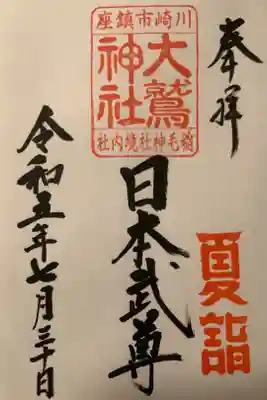 奉拝
川崎市鎮座
大鷲神社
稲毛神社境内社
日本武尊
夏詣
令和五年七月三十日